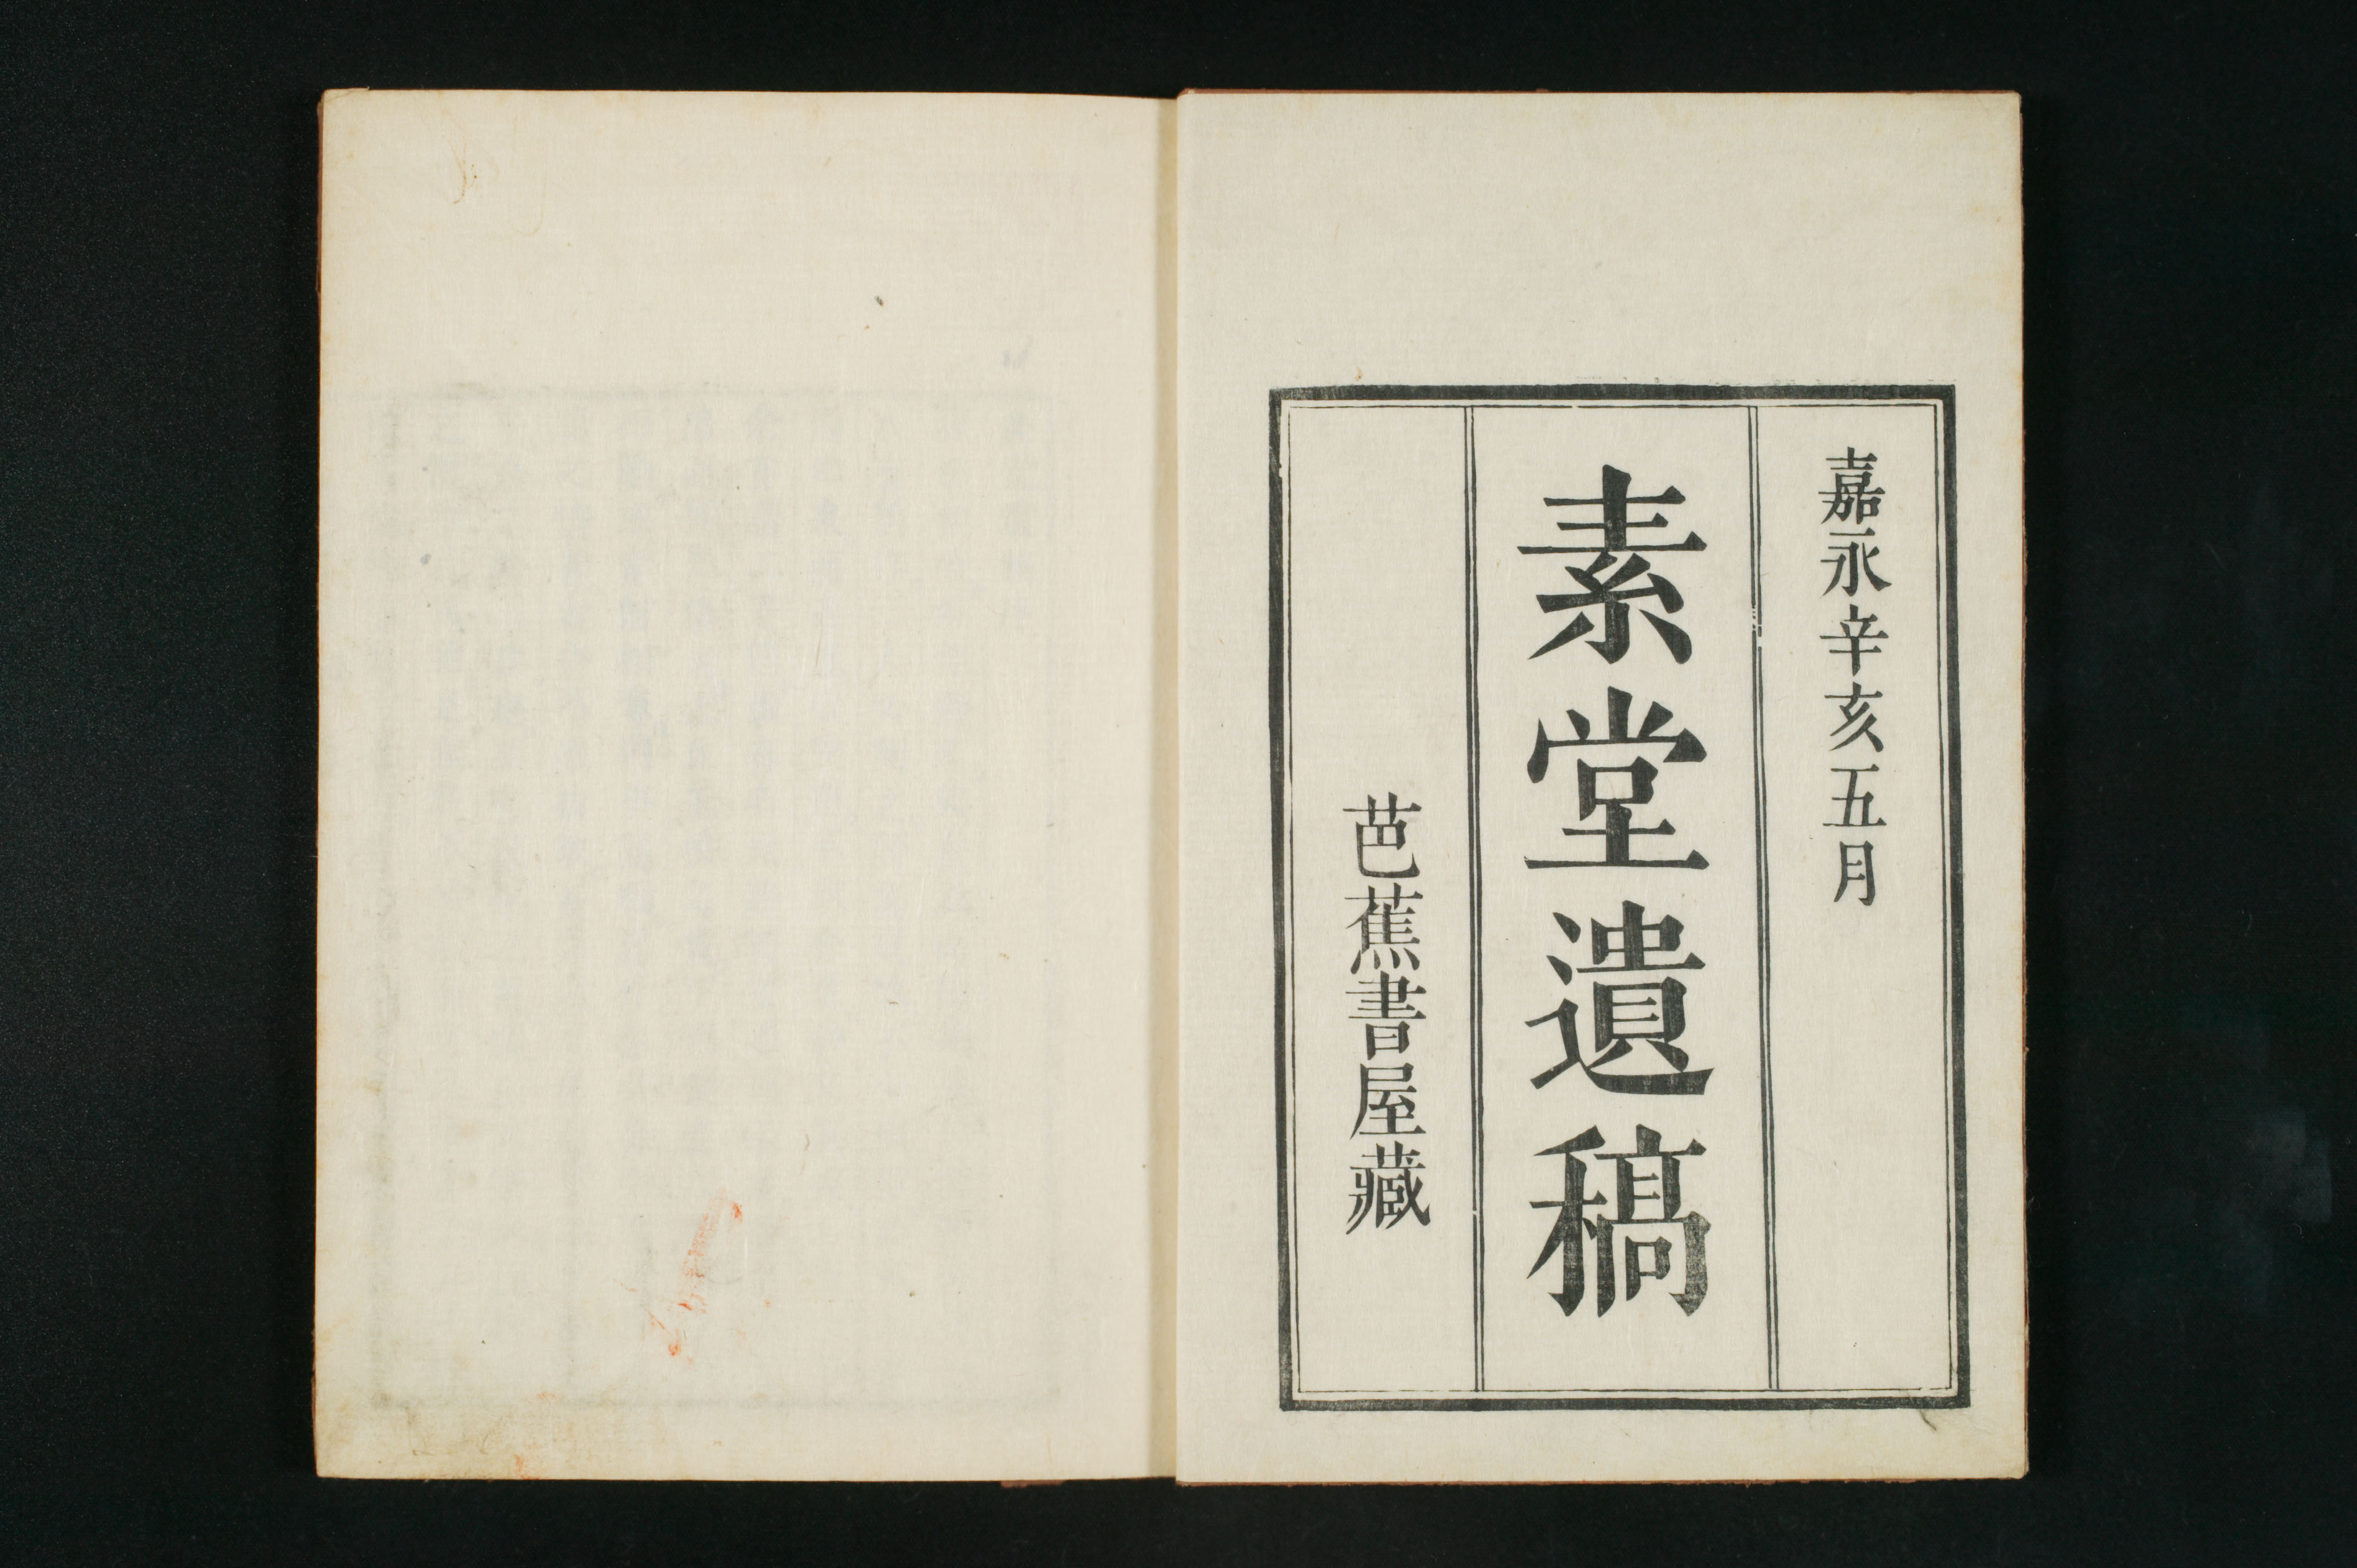 嘉永辛亥五月
素堂遺稿
芭蕉書屋藏